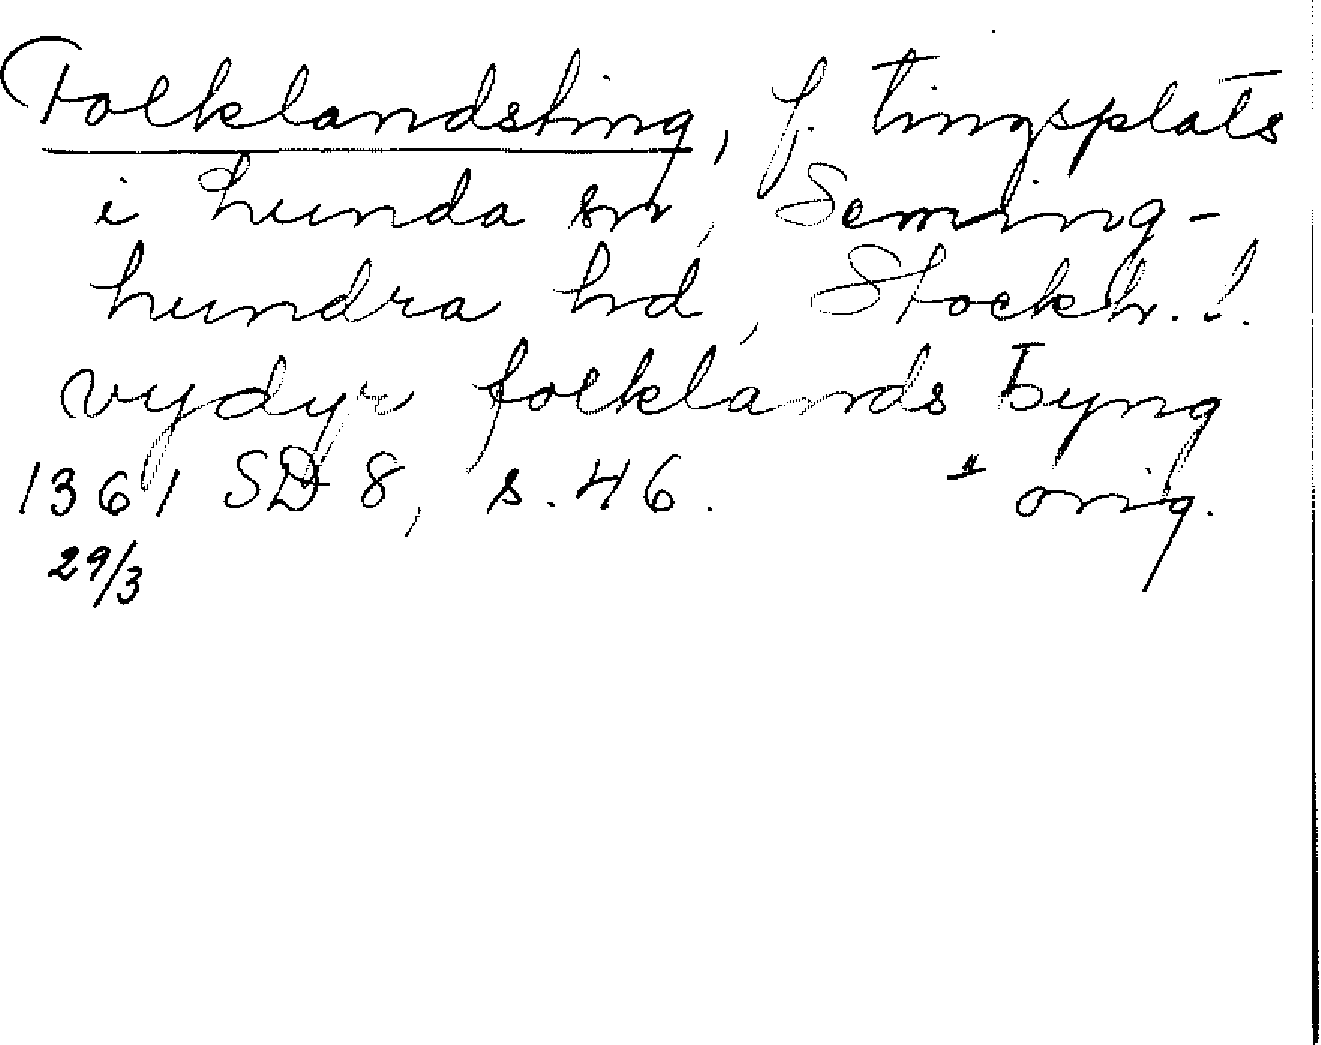 Folklandsting, f. tingsplats
i Lunda sn, Seming-
hundra hd, Stockh. l.
vydyr folklands þyng
1361 SD 8, s. 46. orig.
29/3